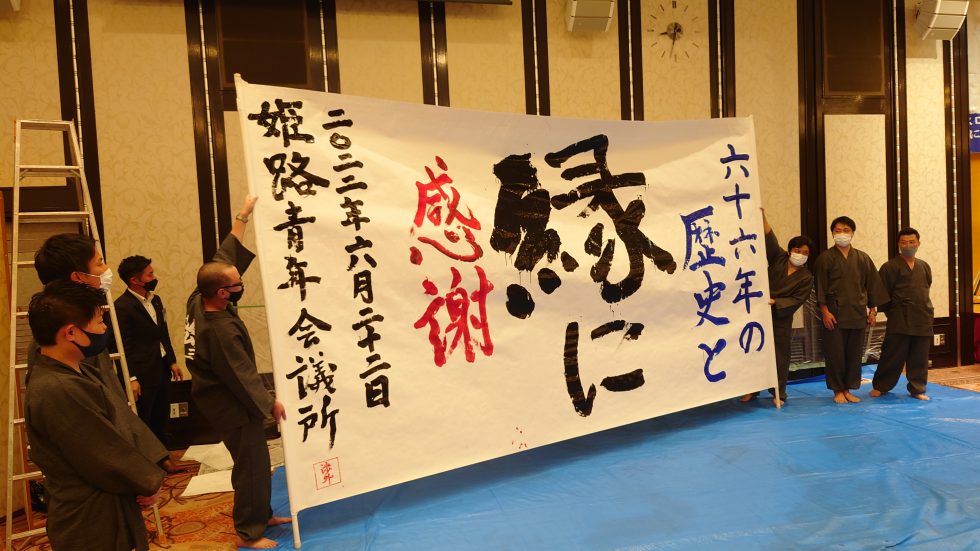 六十六年の
歴史と
縁に
感謝
二〇二二年六月二十二日
姫路青年会議所